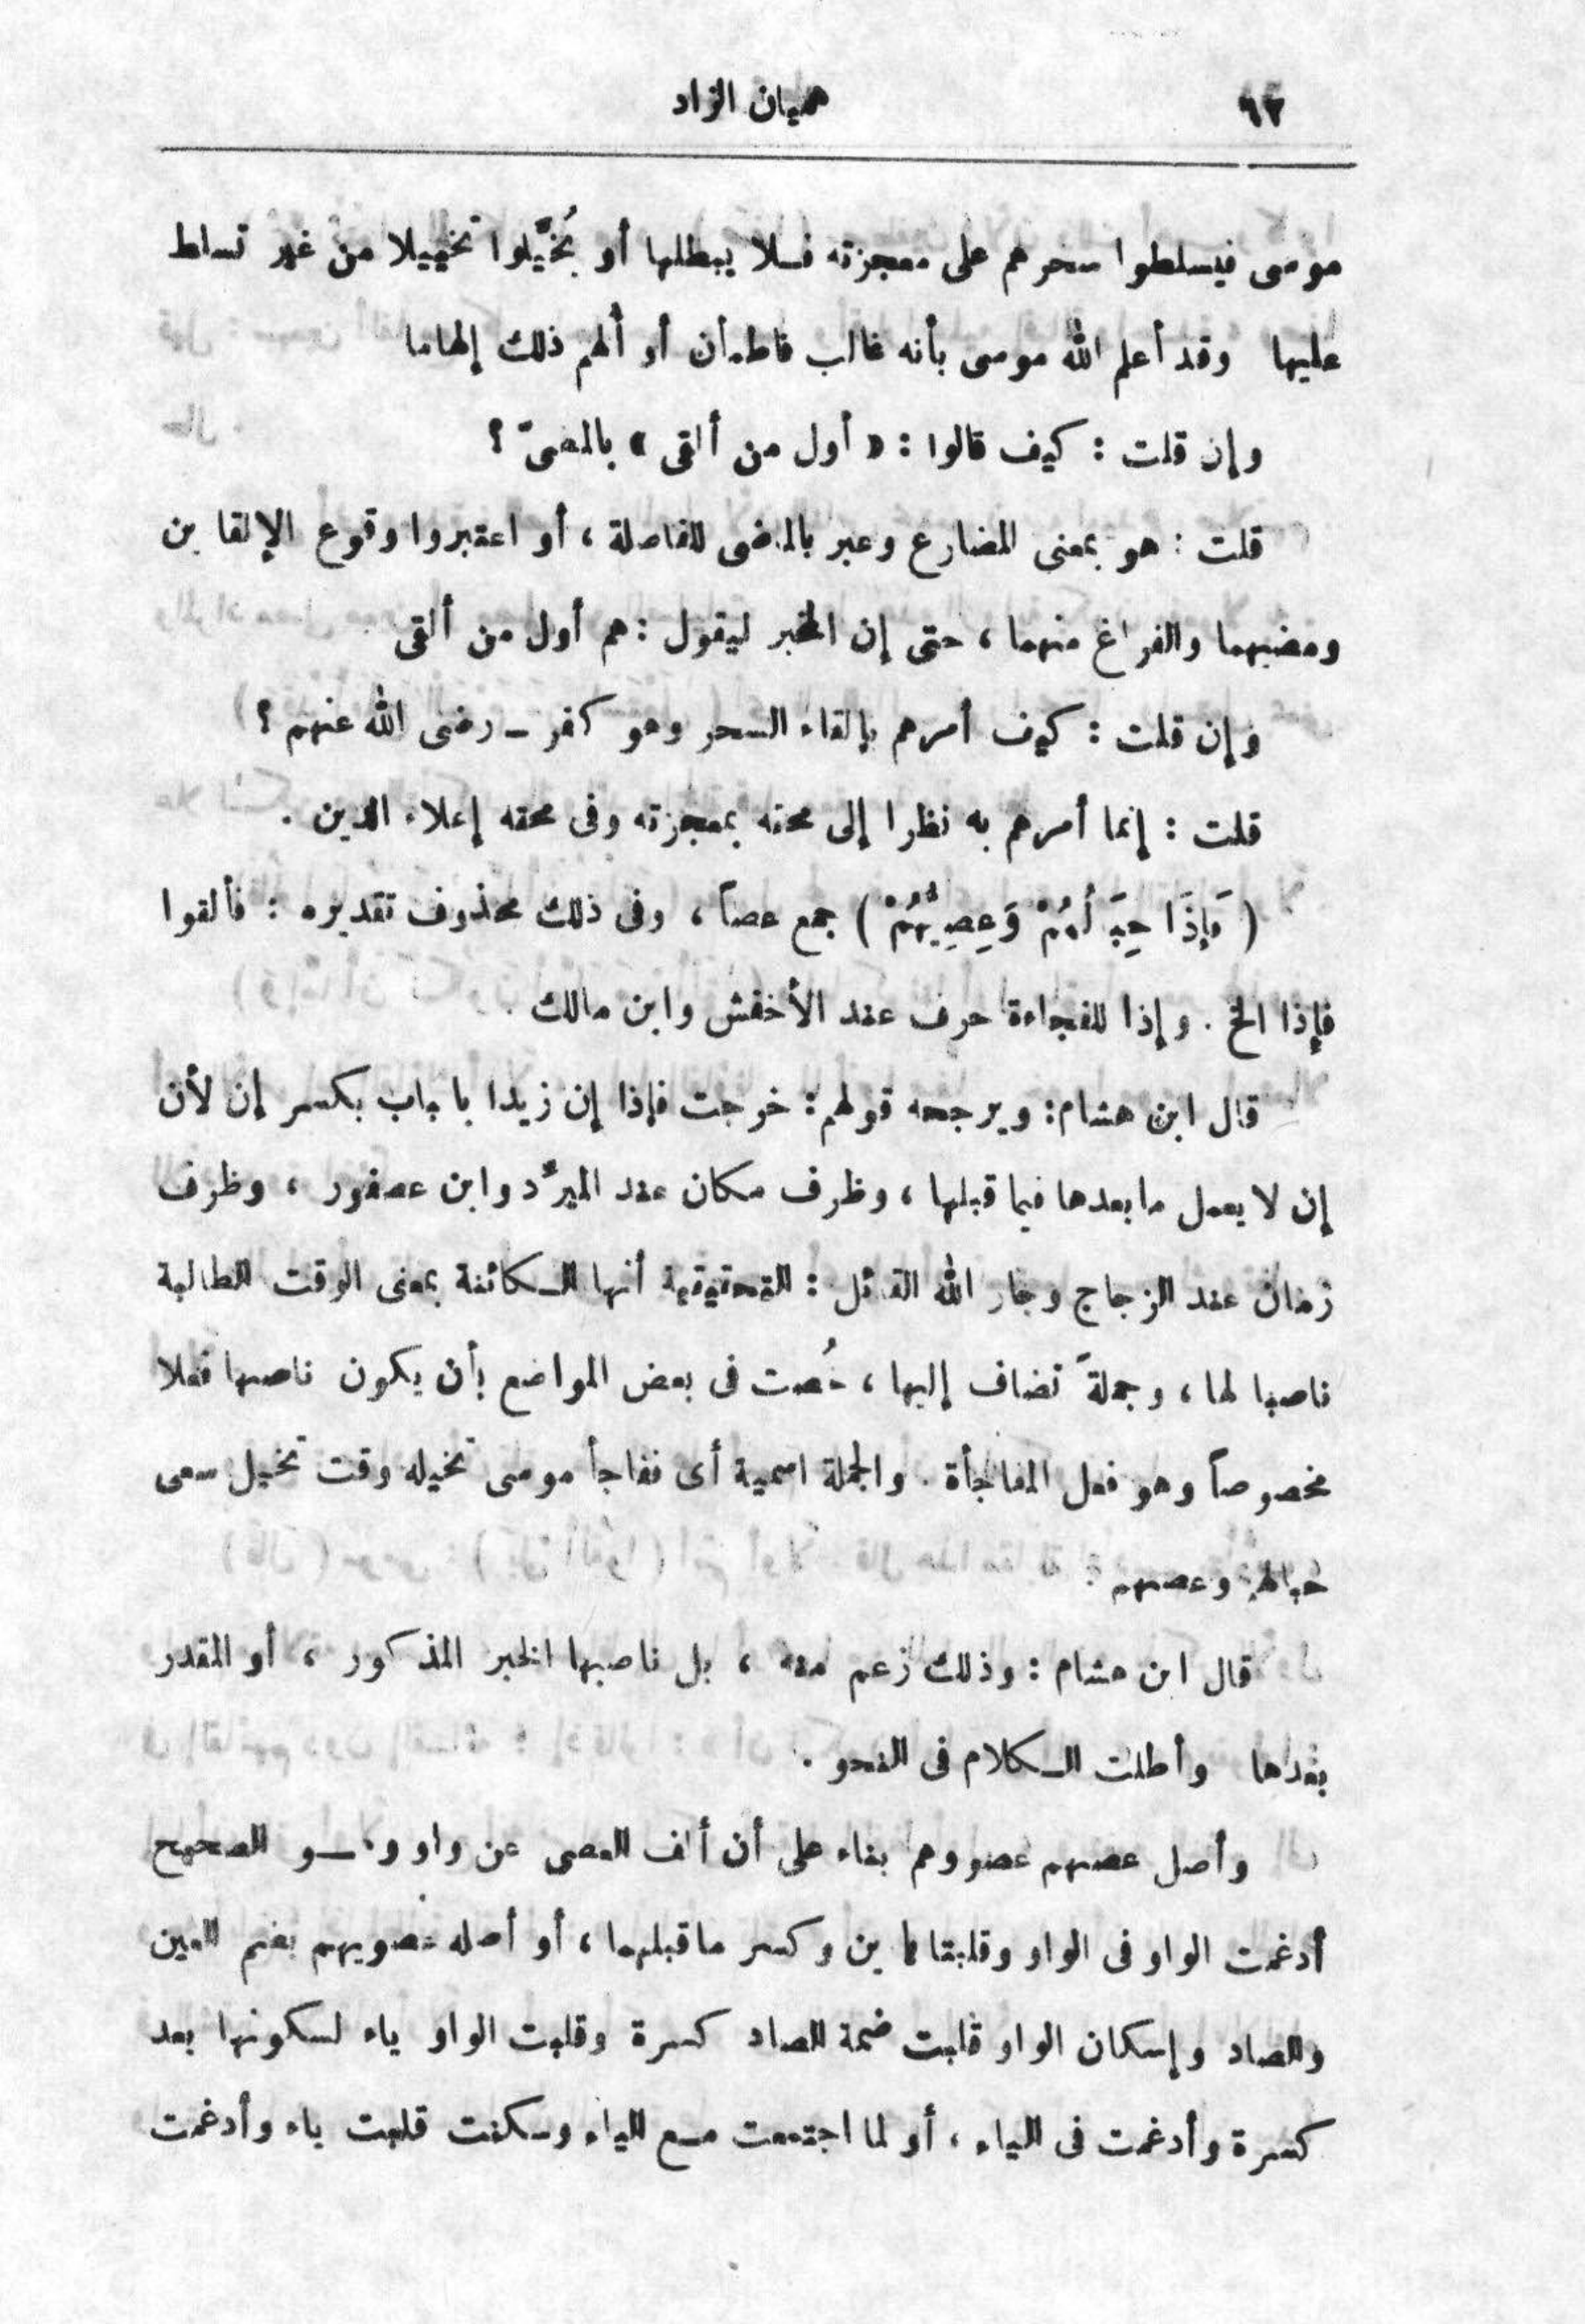 ٦٢
هميان الزاد
موسى فيسلطوا سحرهم على معجزته فلا يبطلها أو يُخَيَّلوا تخييلا من غير تسلط
عليها وقد أعلم الله موسى بأنه غالب فاطمأن أو ألهم ذلك إلهاما
وإن قلت : كيف قالوا : « أول من ألقى » بالمضىّ ؟
قلت : هو بمعنى المضارع وعبر بالماضى للفاصلة ، أو اعتبروا وقوع الإلقاءين
ومضيهما والفراغ منهما ، حتى إن المخبر ليقول : هم أول من ألقى
وإن قلت : كيف أمرهم بإلقاء السحر وهو كفر ـ رضى الله عنهم ؟
قلت : إنما أمرهم به نظرا إلى محقه بمعجزته وفى محقه إعلاء الدين .
( فَإِذَا حِبَالُهُمْ وَعِصِيُّهُمْ ) جمع عصاً ، وفى ذلك محذوف تقديره : فألقوا
فإذا الخ . وإذا للفجاءة حرف عند الأخفش وابن مالك
قال ابن هشام : ويرجحه قولهم : خرجت فإذا إن زيدا بالباب بكسر إن لأن
إن لا يعمل ما بعدها فيما قبلها ، وظرف مكان عند المبرّد وابن عصفور ، وظرف
زمان عند الزجاج وجار الله القائل : التحقيق أنها الكائنة بمعنى الوقت الطالبة
ناصبا لها ، وجملةً تضاف إليها ، خُصت فى بعض المواضع بأن يكون ناصبها فعلا
مخصوصاً وهو فعل المفاجأة . والجملة اسمية أى ففاجأ موسى تخيله وقت تخيل سعى
حبالهم وعصيهم .
قال ابن هشام : وذلك زعم منه ، بل ناصبها الخبر المذكور ، أو المقدر
بعدها وأطلت الكلام فى النحو .
وأصل عصيهم عصووهم بناء على أن ألف العصى عن واو وهو الصحيح
أدغمت الواو فى الواو وقلبتا ياءين وكسر ما قبلهما ، أو أصله عصويهم بضم العين
والصاد وإسكان الواو قلبت ضمة الصاد كسرة وقلبت الواو ياء لسكونها بعد
كسرة وأدغمت فى الياء ، أو لما اجتمعت مع الياء وسكنت قلبت ياء وأدغمت